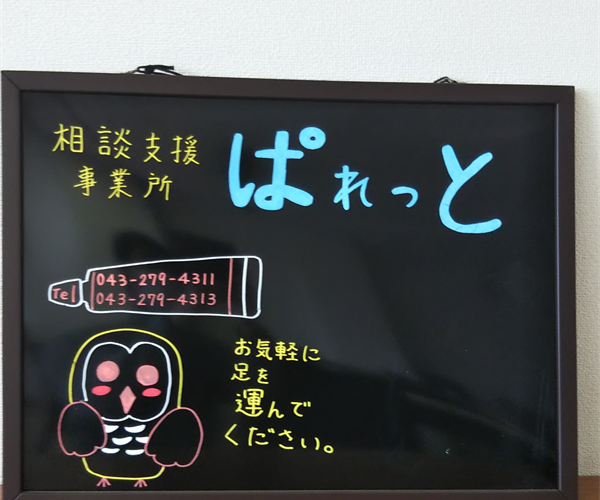 相談支援
事業所
ぱれっと
Tel
043-279-4311
043-279-4313
お気軽に
足を
運んで
ください。